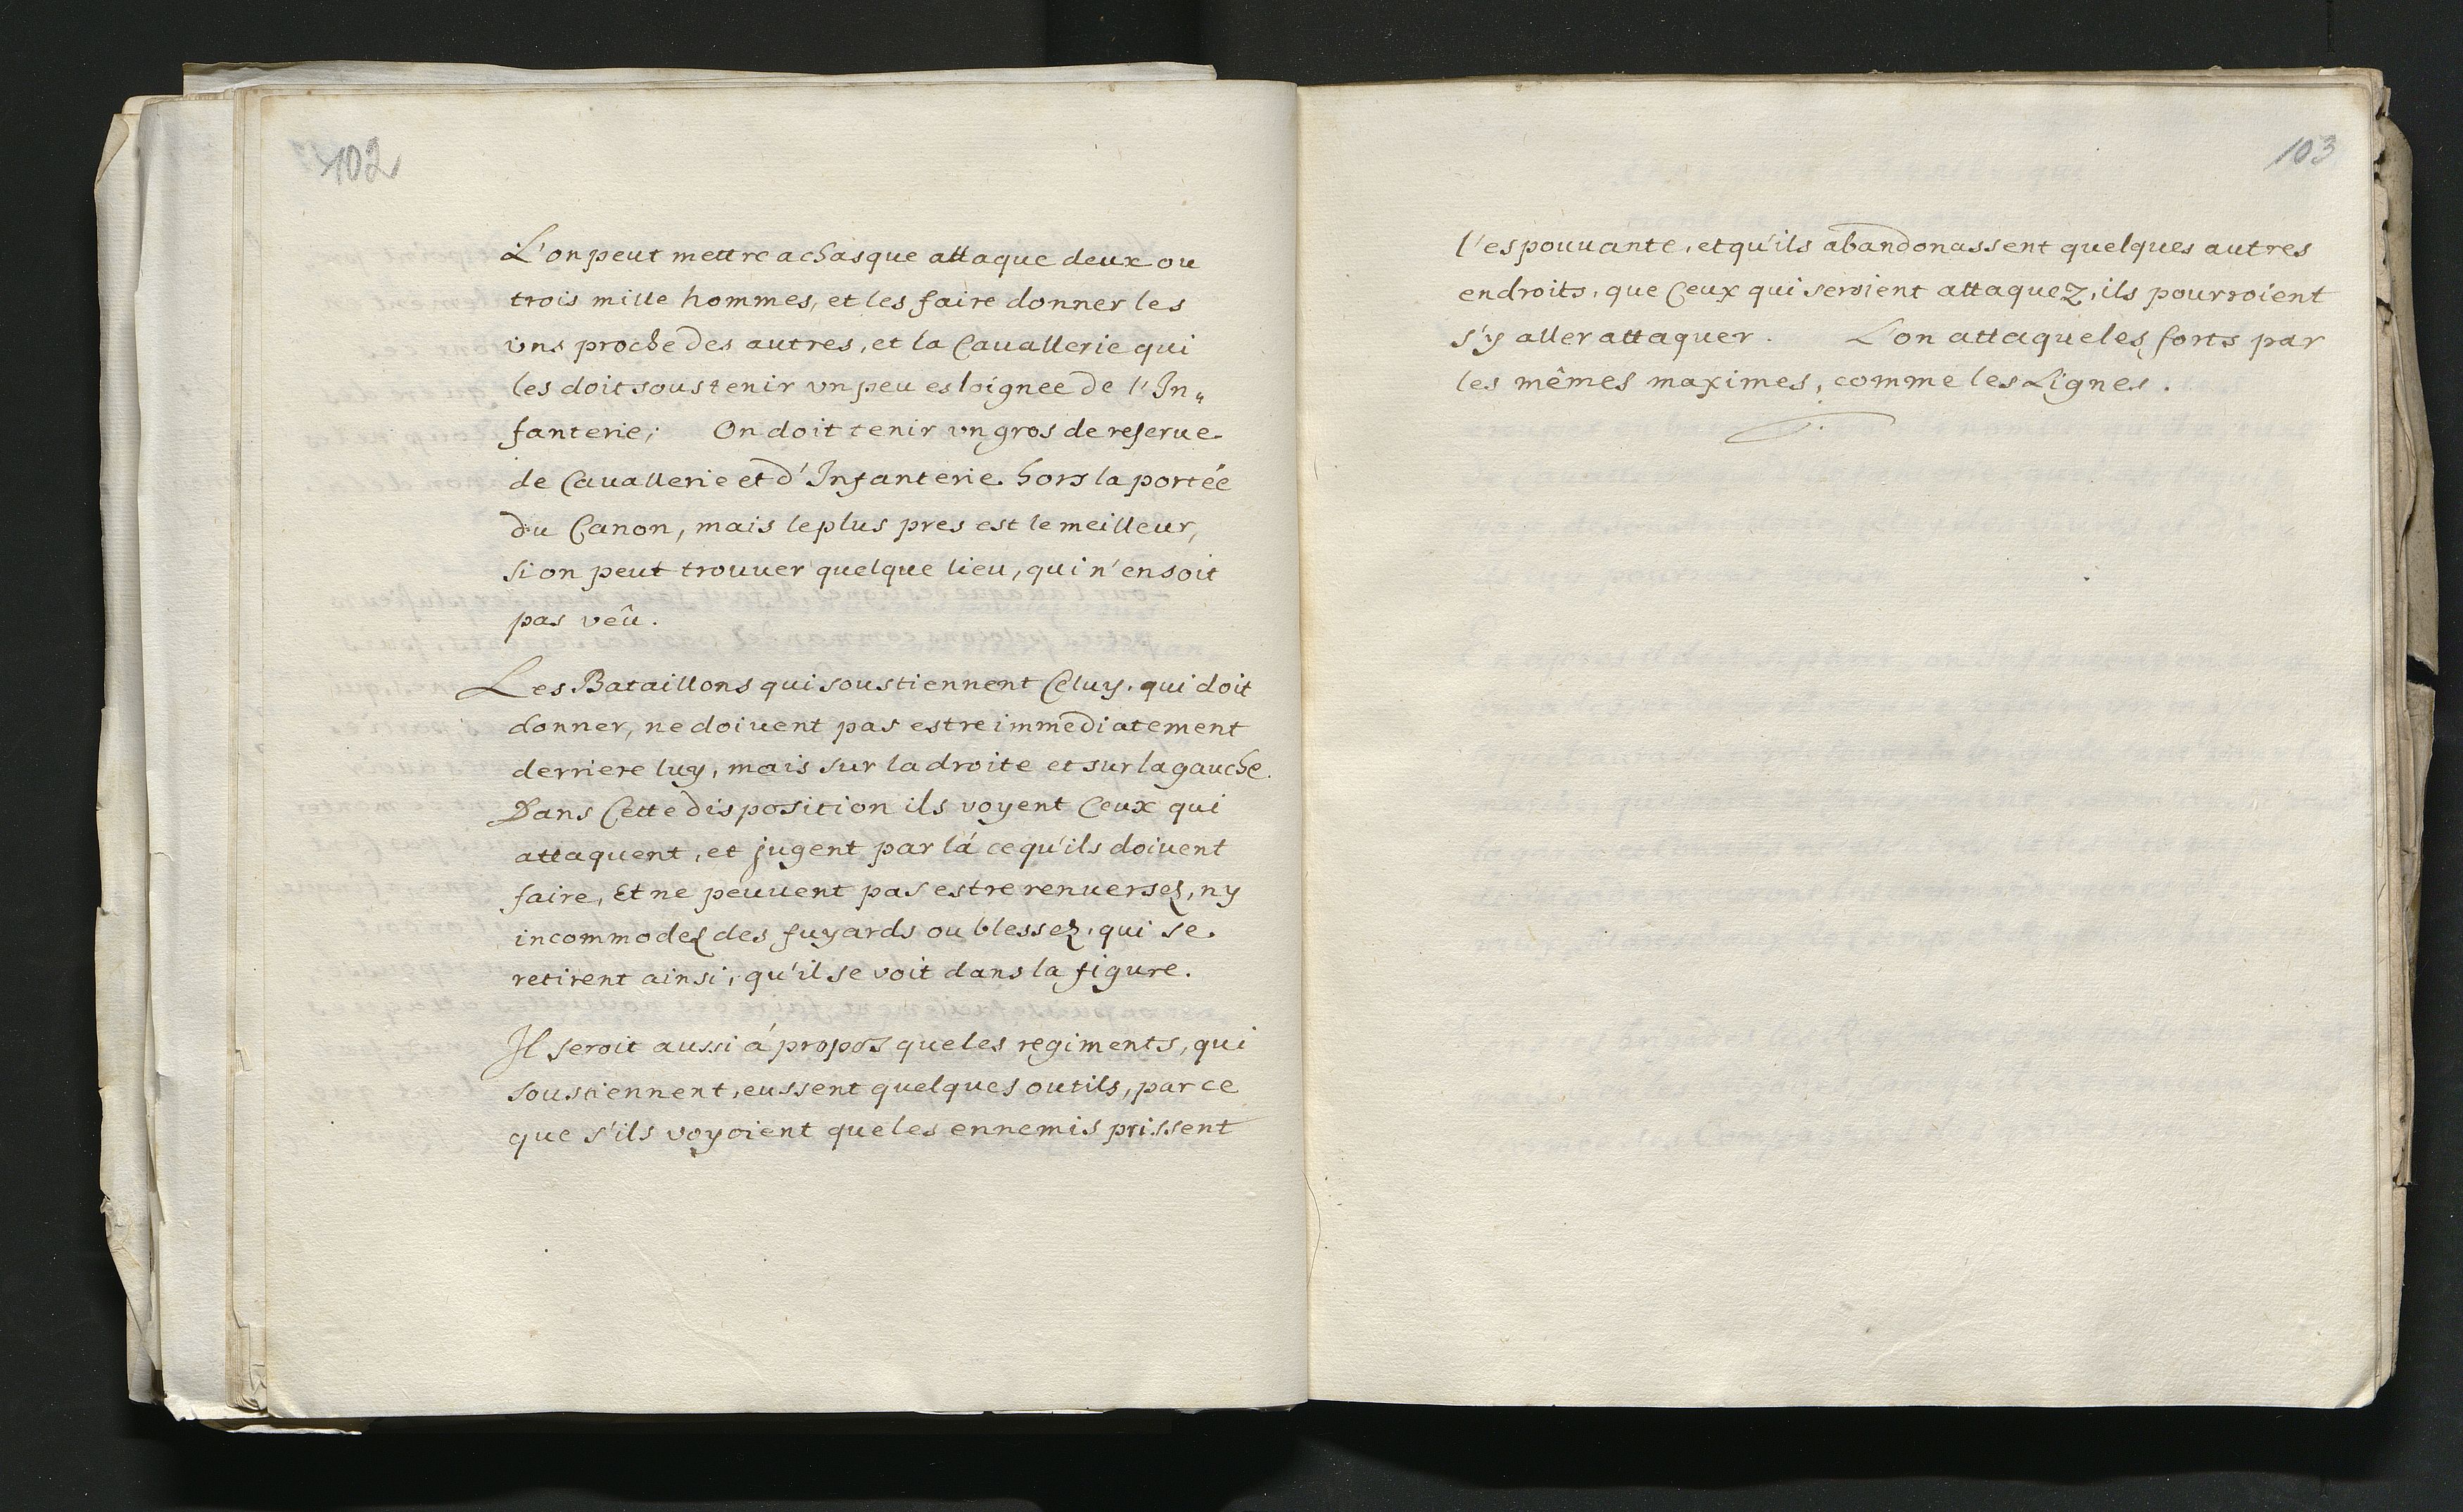 102
L'on peut mettre a chasque attaque deux ou
trois mille hommes, et les faire donner les
vns proche des autres, et la Cauallerie qui
les doit soustenir vn peu esloignee de l'In„
fanterie; On doit tenir vn gros de reserue
de Cauallerie et d'Infanterie hors la portée
du Canon, mais le plus pres est le meilleur,
si on peut trouuer quelque lieu, qui n'en soit
pas vêu.
Les Bataillons qui soustiennent Celuy, qui doit
donner, ne doiuent pas estre immediatement
derriere luy, mais sur la droite et sur la gauche.
Dans Cette disposition ils voyent Ceux qui
attaquent, et jugent par lá ce qu'ils doiuent
faire, Et ne peuuent pas estre renuersez, ny
incommodez des fuyards ou blessez, qui se
retirent ainsi, qu'il se voit dans la figure.
Il seroit aussi á propos que les regiments, qui
soustiennent, eussent quelques outils, par ce
que s'ils voyoient que les ennemis prissent
103
l'espouuante, et qu'ils abandonassent quelques autres
endroits, que Ceux qui seroient attaquez, ils pourroient
s'y aller attaquer. L'on attaque les forts par
les mêmes maximes, comme les Lignes.